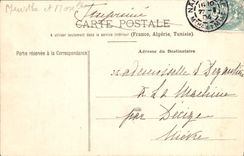 Imprimé
CARTE POSTALE
A utiliser seulement dans le service intérieur (France, Algérie, Tunisie).
Partie réservée à la Correspondance
Adresse du Destinataire
Mademoiselle
à La Machine
par Decize
Nièvre